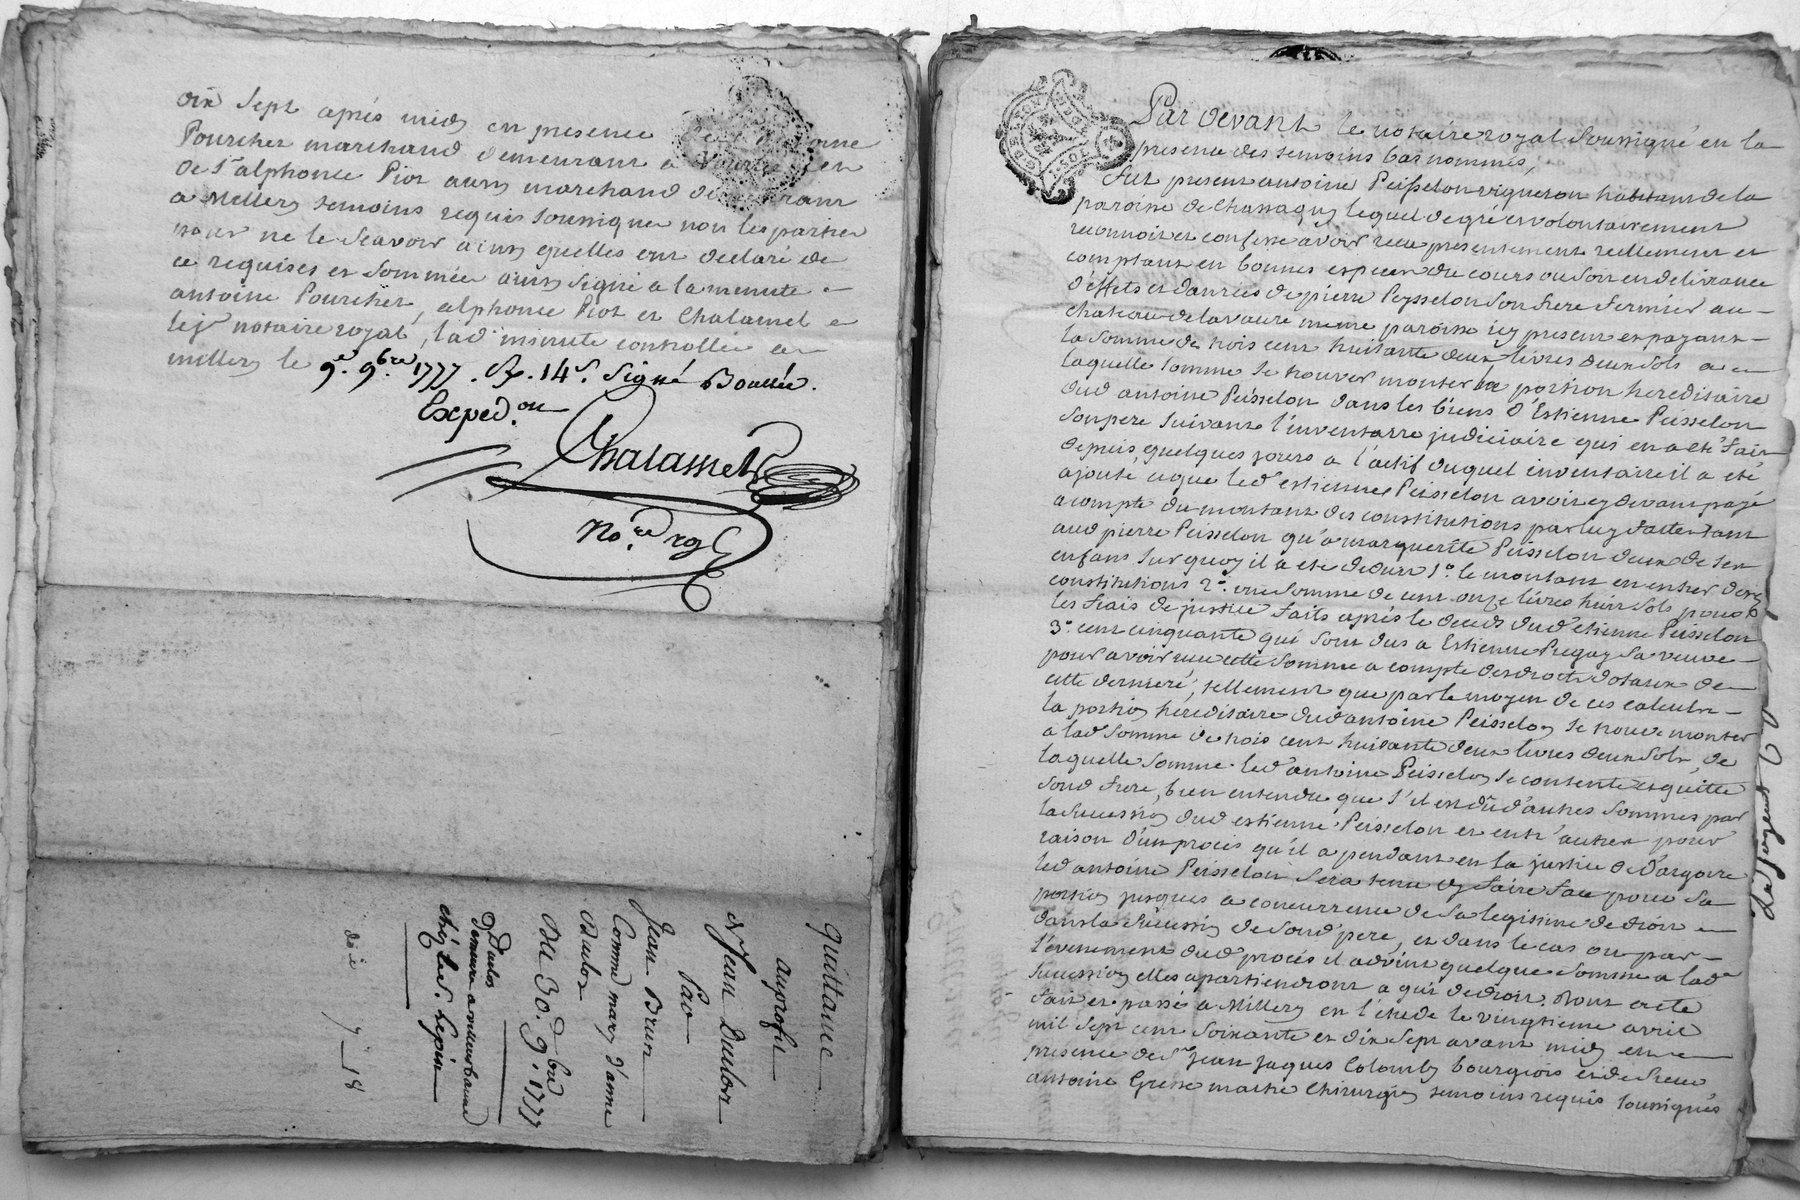 dix sept après midy en presence de Sr antoine
Pourcher marchand demeurant a et
de Sr alphonce Piot aussy marchand demeurant
a Millery temoins requis soussignes non les parties
pour ne le scavoir ainsy quelles ont declaré de
ce requises et sommée ainsy signé a la minute
antoine Pourcher, alphonce Piot et Chalamel
lejr notaire royal, lad minute controllée en
millery le 9e. 9bre 1777. Rx. 14s. Signé Bouslée.
Exped.on
Chalamel
No.re roy
Quittance
au profit
d. Jean Dubost
Par
Jean Brun
Comme mary d'anne
Dubost
Du 30. 8bre 1777
Dubost
demeure a villeurbanne
chéz Led. Lepin
7 18
G.D.E LYON
MOYEN PAP
2 SOLS
Par devant le notaire royal Soussigné en la
presence des temoins bas nommés,
Fut present antoine Peisselon vigneron habitant de la
paroisse de Chassagny lequel de gré et volontairement
reconnoit et confesse avoir recu presentement reellement et
comptant en bonnes especes du cours ou soit en delivrance
d'effets et danrées de pierre Peysselon son frere fermier au
chateau de lavaure meme paroisse icy present et payant
la somme de trois cent huitante deux livres deux sols a
laquelle somme se trouver monter la portion hereditaire
dud antoine Peisselon dans les biens d'Estienne Peisselon
son pere suivant l'inventaire judiciaire qui en a eté fait
depuis quelques jours a l'actif duquel inventaire il a eté
ajouté ce que led estienne Peisselon avoit cy devant payé
a compte du montant des constitutions par luy faittes tant
aud pierre Peisselon qu'a marguerite Peisselon deux de ses
enfans sur quoy il a eté deduit 1o. le montant en entier desd
constitutions 2o. une somme de cent onze livres huit sols pour
les frais de justice faits après le deces dud etienne Peisselon
3o. cent cinquante qui sont dus a Estiennette Pregay sa veuve
pour avoir recu cette somme a compte des droits dotaux de
cette derniere, tellement que par le moyen de ces calculs
la portion hereditaire dud antoine Peisselon se trouve monter
a lad somme de trois cent huitante deux livres deux sols, de
laquelle somme led antoine Peisselon se contente et quitte
sond frere, bien entendu que s'il est dû d'autres sommes par
la succession dud estienne Peisselon et entr'autres pour
raison d'un procès qu'il a pendant en la justice de Dargoire
led antoine Peisselon sera tenu d'y faire face pour sa
portion jusques a concurrence de sa legitime de droit
dans la succession de sond pere, et dans le cas ou par
l'evenement dud procés il advint quelque somme a lad
succession elles apartiendront a qui de droit. Dont acte
fait et passé a Millery en l'etude le vingtieme avril
mil sept cent soixante et dix sept avant midy en
presence de Sr Jean Jaques Colomby bourgeois et de sieur
antoine Gresse maitre Chirurgien temoins requis soussignés